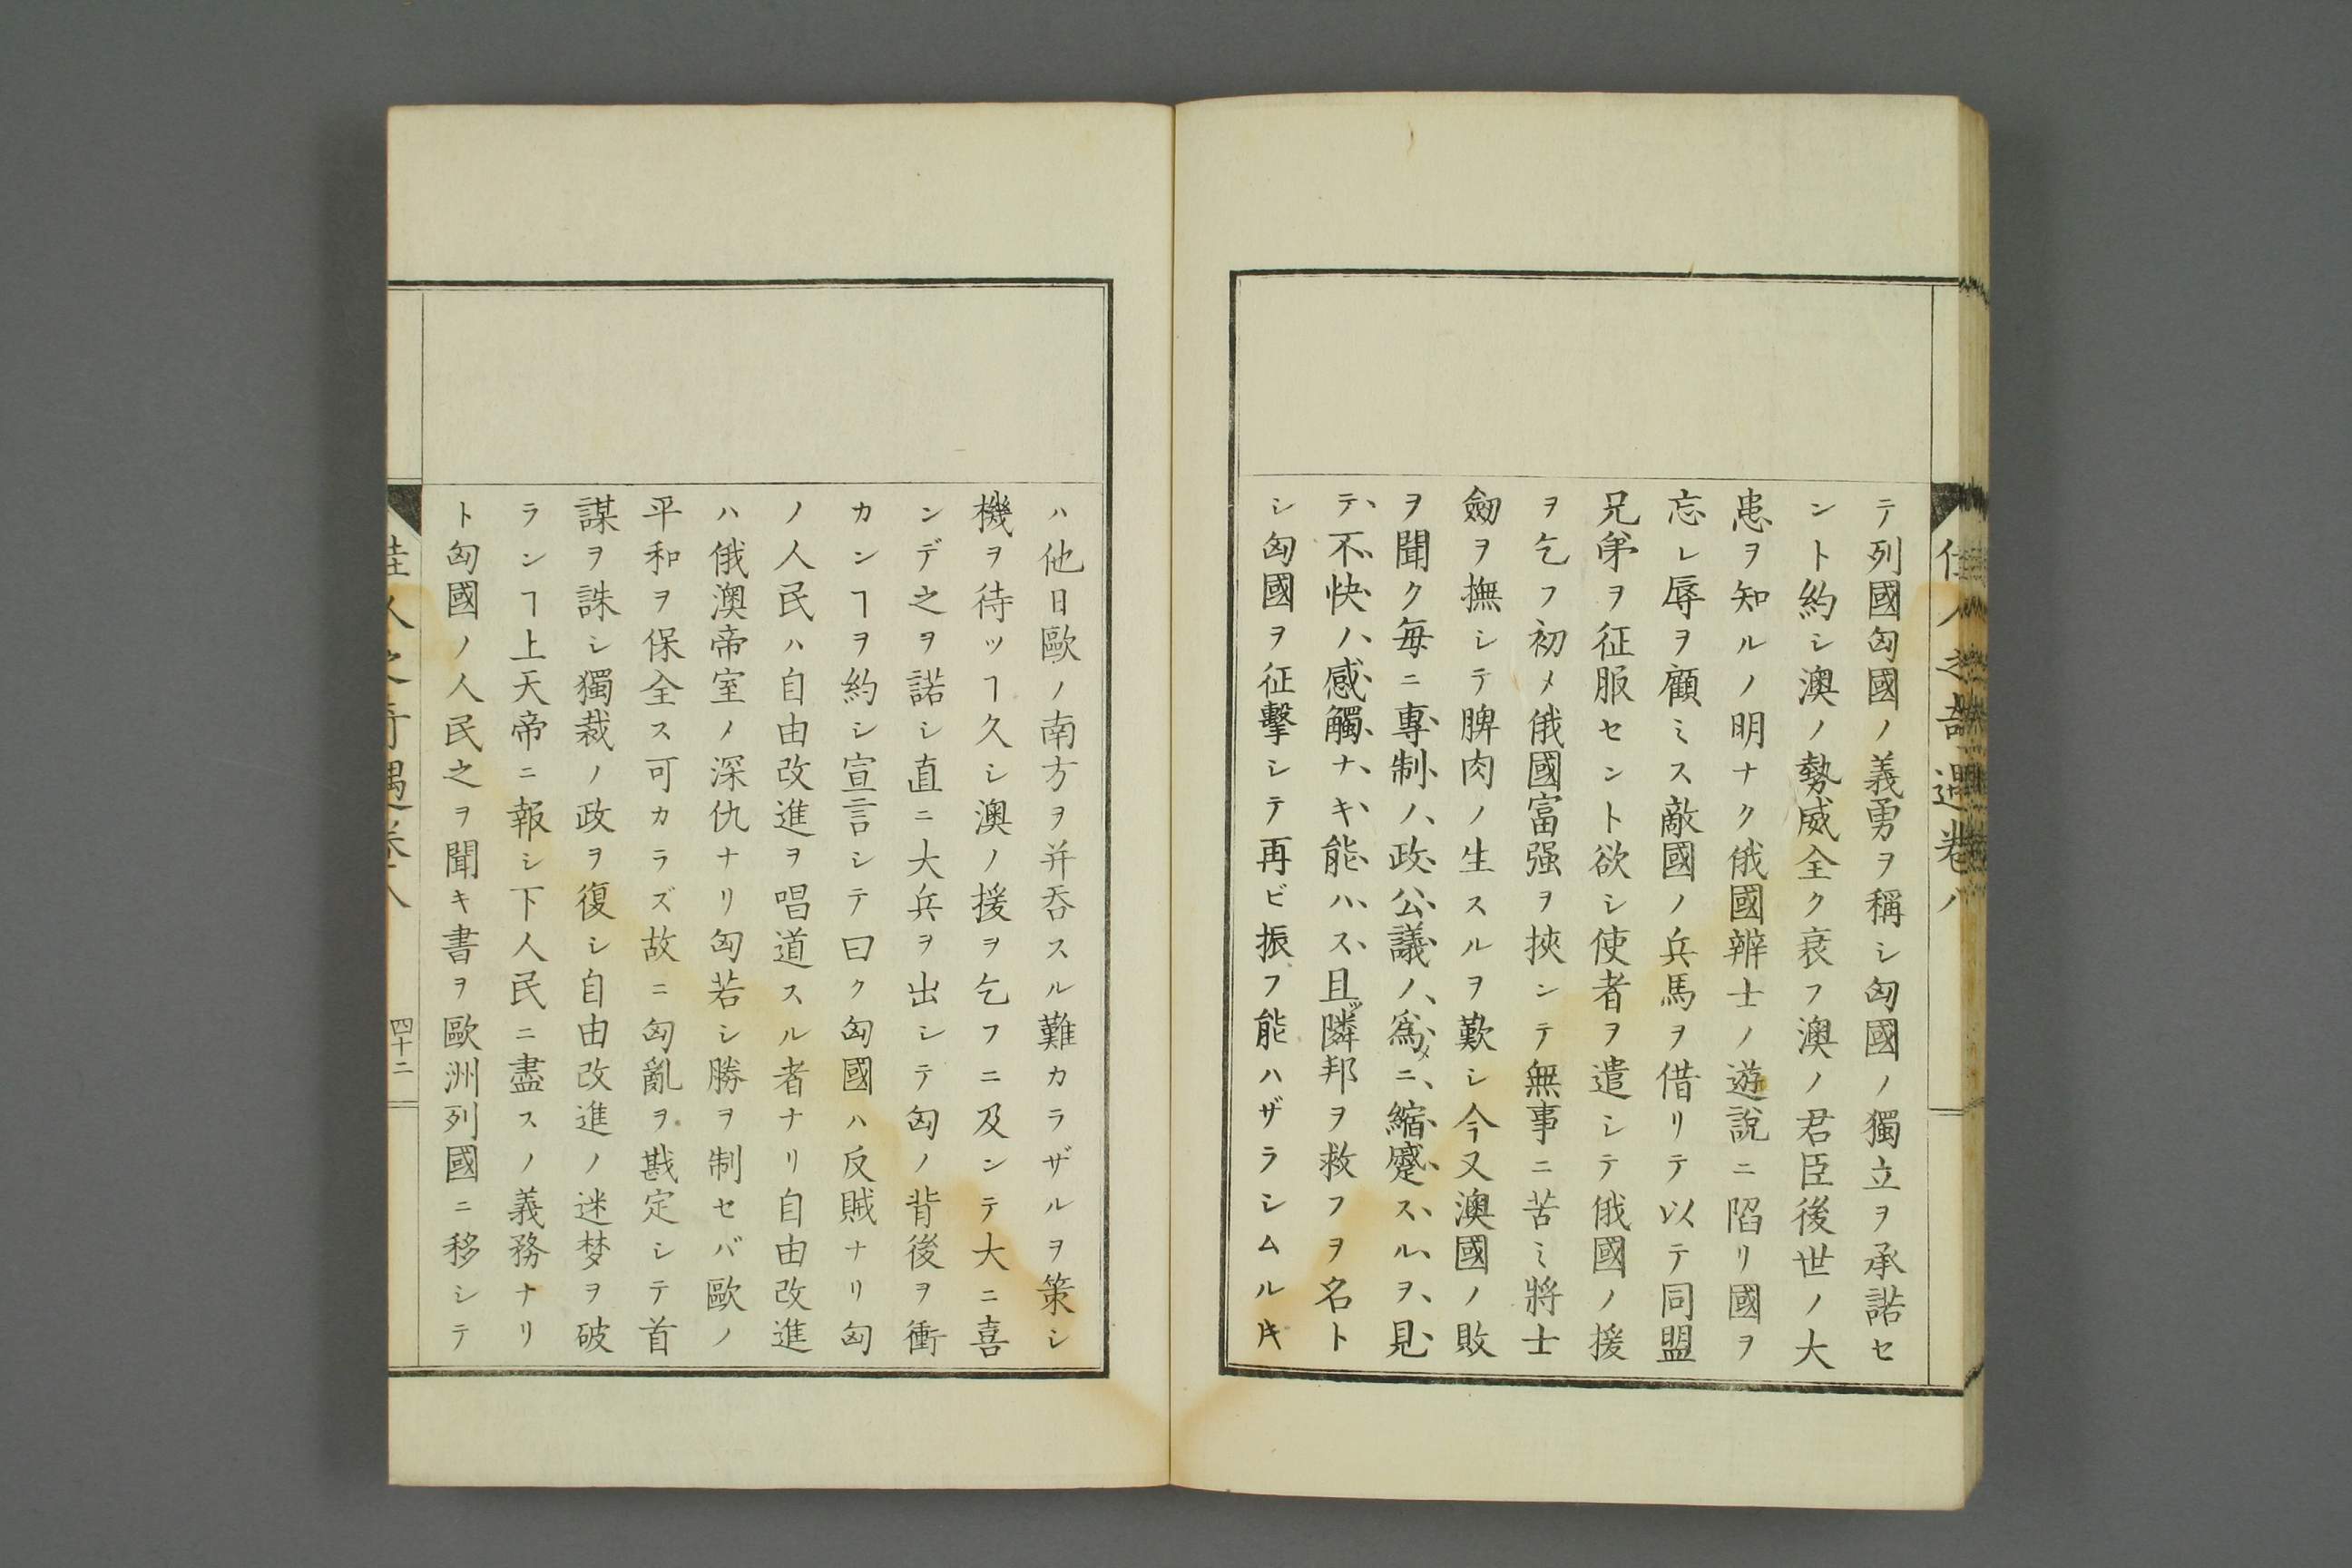 佳人之奇遇卷八
テ列國匈國ノ義勇ヲ稱シ匈國ノ獨立ヲ承諾セ
ント約シ澳ノ勢威全ク衰フ澳ノ君臣後世ノ大
患ヲ知ルノ明ナク俄國辨士ノ遊說ニ陷リ國ヲ
忘レ辱ヲ顧ミス敵國ノ兵馬ヲ借リテ以テ同盟
兄弟ヲ征服セント欲シ使者ヲ遣シテ俄國ノ援
ヲ乞フ初メ俄國富强ヲ挾ンテ無事ニ苦ミ將士
劒ヲ撫シテ脾肉ノ生スルヲ歎シ今又澳國ノ敗
ヲ聞ク每ニ專制ノ政公議ノ爲メニ縮蹙スルヲ見
テ不快ハ感觸ナキ能ハス且ツ隣邦ヲ救フヲ名ト
シ匈國ヲ征擊シテ再ビ振フ能ハザラシムル𪜈
ハ他日歐ノ南方ヲ并吞スル難カラザルヲ策シ
機ヲ待ツヿ久シ澳ノ援ヲ乞フニ及ンテ大ニ喜
ンデ之ヲ諾シ直ニ大兵ヲ出シテ匈ノ背後ヲ衝
カンヿヲ約シ宣言シテ曰ク匈國ハ反賊ナリ匈
ノ人民ハ自由改進ヲ唱道スル者ナリ自由改進
ハ俄澳帝室ノ深仇ナリ匈若シ勝ヲ制セバ歐ノ
平和ヲ保全ス可カラズ故ニ匈亂ヲ戡定シテ首
謀ヲ誅シ獨裁ノ政ヲ復シ自由改進ノ迷梦ヲ破
ランヿ上天帝ニ報シ下人民ニ盡スノ義務ナリ
ト匈國ノ人民之ヲ聞キ書ヲ歐洲列國ニ移シテ
佳人之奇遇卷八
四十二